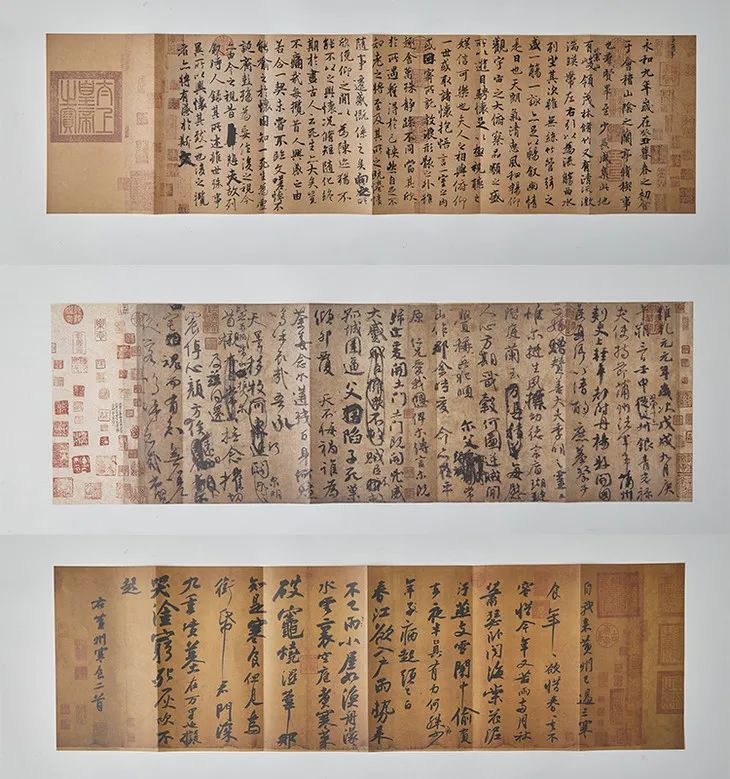 永和九年歲在癸丑暮春之初會
于會稽山陰之蘭亭脩稧事
也群賢畢至少長咸集此地
有崇山峻領茂林脩竹又有清流激
湍暎帶左右引以為流觴曲水
列坐其次雖無絲竹管弦之
盛一觴一詠亦足以暢敘幽情
是日也天朗氣清惠風和暢仰
觀宇宙之大俯察品類之盛
所以遊目騁懷足以極視聽之
娛信可樂也夫人之相與俯仰
一世或取諸懷抱悟言一室之內
或因寄所託放浪形骸之外雖
趣舍萬殊靜躁不同當其欣
於所遇暫得於己怏然自足不
知老之將至及其所之既惓情
隨事遷感慨係之矣向之所
欣俛仰之間以為陳迹猶不
能不以之興懷況脩短隨化終
期於盡古人云死生亦大矣豈
不痛哉每攬昔人興感之由
若合一契未嘗不臨文嗟悼不
能喻之於懷固知一死生為虛
誕齊彭殤為妄作後之視今
亦由今之視昔悲夫故列
敘時人錄其所述雖世殊事
異所以興懷其致一也後之攬
者亦將有感於斯文
太上皇帝之寶
維乾元元年歲次戊戌九月庚
午朔三日壬申第十三叔銀青光祿
夫使持節蒲州諸軍事蒲州
刺史上輕車都尉丹楊縣開國
侯真卿以清酌庶羞祭于
亡姪贈贊善大夫季明之靈曰
惟爾挺生夙標幼德宗廟瑚璉
階庭蘭玉每慰
人心方期戩穀何圖逆賊閒
釁稱兵犯順爾父竭誠常
山作郡余時受命亦在平
原仁兄愛我俾爾傳言爾既
歸止爰開土門土門既開凶威
大蹙賊臣不救孤
城圍逼父陷子死巢
傾卵覆天不悔禍誰為
荼毒念爾遘殘百身何贖
嗚乎哀哉吾承
天澤移牧河關泉明
首櫬及茲同還撫念摧切
震悼心顏方俟遠日
宅魂而有知無嗟
久客嗚呼哀哉尚饗
自我來黃州已過三寒
食年〻欲惜春〻去不
容惜今年又苦雨兩月秋
蕭瑟臥聞海棠花泥
汙燕支雪闇中偷負
去夜半真有力何殊少
年子病起須已白
春江欲入戶雨勢來
不已雨小屋如漁舟濛〻
水雲裏空庖煮寒菜
破竈燒溼葦那
知是寒食但見烏
銜帋君門深
九重墳墓在万里也擬
哭塗窮死灰吹不
起
右黃州寒食二首